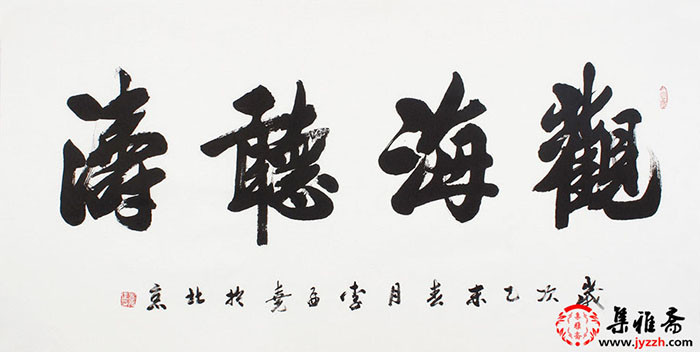 觀海聽濤
歲次乙未春月李孟堯於北京
集雅斋
www.jyzzh.com